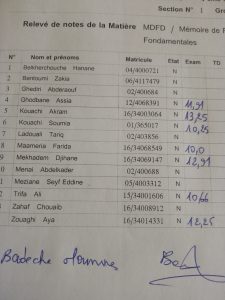 Section N° Gro
Relevé de notes de la Matière MDFD / Mémoire de F
Fondamentales
N° Nom et prénoms Matricule Etat Exam TD
Belkherchouche Hanane 04/4000721 N
2 Bentoumi Zakia 06/4117479 N
3 Ghediri Abderaouf 02/400684 N
4 Ghodbane Assia 12/4068391 N 11,91
5 Kouachi Akram 16/34003064 N 13,25
6 Kouachi Soumia 01/365017 N 10,25
7 Ladouali Tariq 02/403856 N
8 Maameria Farida 16/34068549 N 10,0
9 Mekhadem Djihane 16/34069147 N 12,91
0 Menai Abdelkader 02/400688 N
1 Meziane Seyf Eddine 05/4003312 N
2 Trifa Ali 15/34001606 N 10,66
3 Zahaf Chouaib 16/34008912 N
Zouaghi Aya 16/34014331 N 12,25